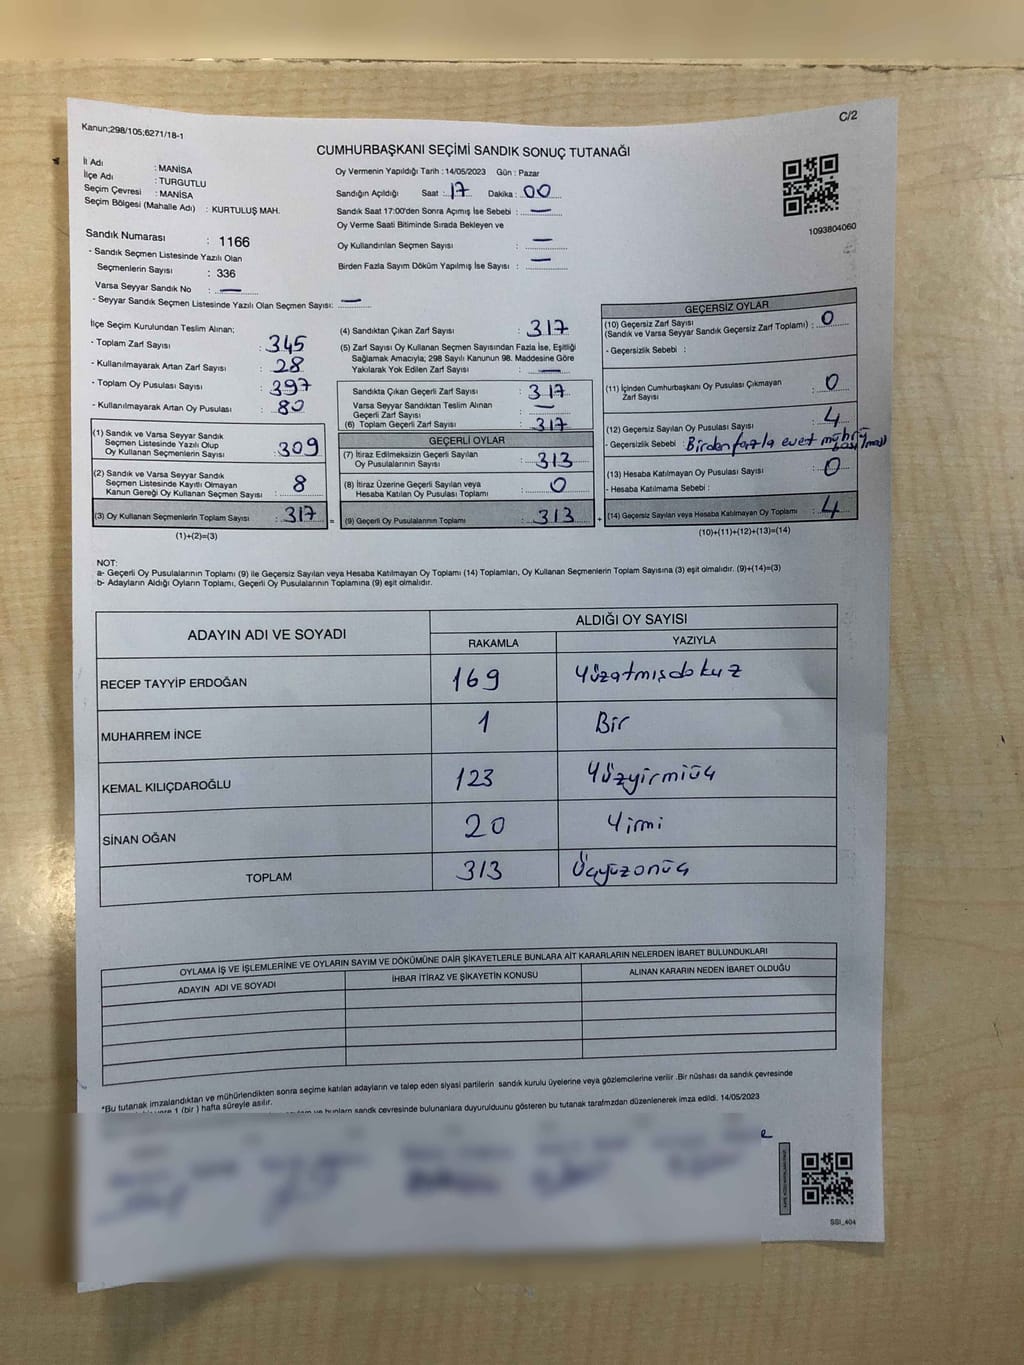 C/2
Kanun;298/105;6271/18-1
CUMHURBAŞKANI SEÇİMİ SANDIK SONUÇ TUTANAĞI
İl Adı : MANİSA
İlçe Adı : TURGUTLU
Seçim Çevresi : MANİSA
Seçim Bölgesi (Mahalle Adı) : KURTULUŞ MAH.
Oy Vermenin Yapıldığı Tarih : 14/05/2023 Gün : Pazar
Sandığın Açıldığı Saat : 17 Dakika : 00
Sandık Saat 17:00'den Sonra Açımış İse Sebebi : —
Oy Verme Saati Bitiminde Sırada Bekleyen ve
Oy Kullandırılan Seçmen Sayısı : —
Birden Fazla Sayım Döküm Yapılmış İse Sayısı : —
1093804060
Sandık Numarası : 1166
- Sandık Seçmen Listesinde Yazılı Olan
Seçmenlerin Sayısı : 336
Varsa Seyyar Sandık No : —
- Seyyar Sandık Seçmen Listesinde Yazılı Olan Seçmen Sayısı: —
İlçe Seçim Kurulundan Teslim Alınan;
- Toplam Zarf Sayısı : 345
- Kullanılmayarak Artan Zarf Sayısı : 28
- Toplam Oy Pusulası Sayısı : 397
- Kullanılmayarak Artan Oy Pusulası : 80
(1) Sandık ve Varsa Seyyar Sandık
Seçmen Listesinde Yazılı Olup
Oy Kullanan Seçmenlerin Sayısı : 309
(2) Sandık ve Varsa Seyyar Sandık
Seçmen Listesinde Kayıtlı Olmayan
Kanun Gereği Oy Kullanan Seçmen Sayısı : 8
(3) Oy Kullanan Seçmenlerin Toplam Sayısı : 317
(1)+(2)=(3)
(4) Sandıktan Çıkan Zarf Sayısı : 317
(5) Zarf Sayısı Oy Kullanan Seçmen Sayısından Fazla İse, Eşitliği
Sağlamak Amacıyla; 298 Sayılı Kanunun 98. Maddesine Göre
Yakılarak Yok Edilen Zarf Sayısı : —
Sandıkta Çıkan Geçerli Zarf Sayısı : 317
Varsa Seyyar Sandıktan Teslim Alınan
Geçerli Zarf Sayısı : —
(6) Toplam Geçerli Zarf Sayısı : 317
GEÇERLİ OYLAR
(7) İtiraz Edilmeksizin Geçerli Sayılan
Oy Pusulalarının Sayısı : 313
(8) İtiraz Üzerine Geçerli Sayılan veya
Hesaba Katılan Oy Pusulası Toplamı : 0
= (9) Geçerli Oy Pusulalarının Toplamı : 313 +
GEÇERSİZ OYLAR
(10) Geçersiz Zarf Sayısı
(Sandık ve Varsa Seyyar Sandık Geçersiz Zarf Toplamı) : 0
- Geçersizlik Sebebi :
(11) İçinden Cumhurbaşkanı Oy Pusulası Çıkmayan
Zarf Sayısı : 0
(12) Geçersiz Sayılan Oy Pusulası Sayısı : 4
- Geçersizlik Sebebi : Birden fazla evet mührü basılması
(13) Hesaba Katılmayan Oy Pusulası Sayısı : 0
- Hesaba Katılmama Sebebi :
(14) Geçersiz Sayılan veya Hesaba Katılmayan Oy Toplamı : 4
(10)+(11)+(12)+(13)=(14)
NOT:
a- Geçerli Oy Pusulalarının Toplamı (9) ile Geçersiz Sayılan veya Hesaba Katılmayan Oy Toplamı (14) Toplamları, Oy Kullanan Seçmenlerin Toplam Sayısına (3) eşit olmalıdır. (9)+(14)=(3)
b- Adayların Aldığı Oyların Toplamı, Geçerli Oy Pusulalarının Toplamına (9) eşit olmalıdır.
ADAYIN ADI VE SOYADI
ALDIĞI OY SAYISI
RAKAMLA YAZIYLA
RECEP TAYYİP ERDOĞAN 169 Yüzatmışdokuz
MUHARREM İNCE 1 Bir
KEMAL KILIÇDAROĞLU 123 Yüzyirmiüç
SİNAN OĞAN 20 Yirmi
TOPLAM 313 Üçyüzonüç
OYLAMA İŞ VE İŞLEMLERİNE VE OYLARIN SAYIM VE DÖKÜMÜNE DAİR ŞİKAYETLERLE BUNLARA AİT KARARLARIN NELERDEN İBARET BULUNDUKLARI
ADAYIN ADI VE SOYADI İHBAR İTİRAZ VE ŞİKAYETİN KONUSU ALINAN KARARIN NEDEN İBARET OLDUĞU
*Bu tutanak imzalandıktan ve mühürlendikten sonra seçime katılan adayların ve talep eden siyasi partilerin sandık kurulu üyelerine veya gözlemcilerine verilir .Bir nüshası da sandık çevresinde
1 (bir ) hafta süreyle asılır.
ve bunların sandık çevresinde bulunanlara duyurulduunu gösteren bu tutanak tarafımzdan düzenlenerek imza edildi. 14/05/2023
SSI_404